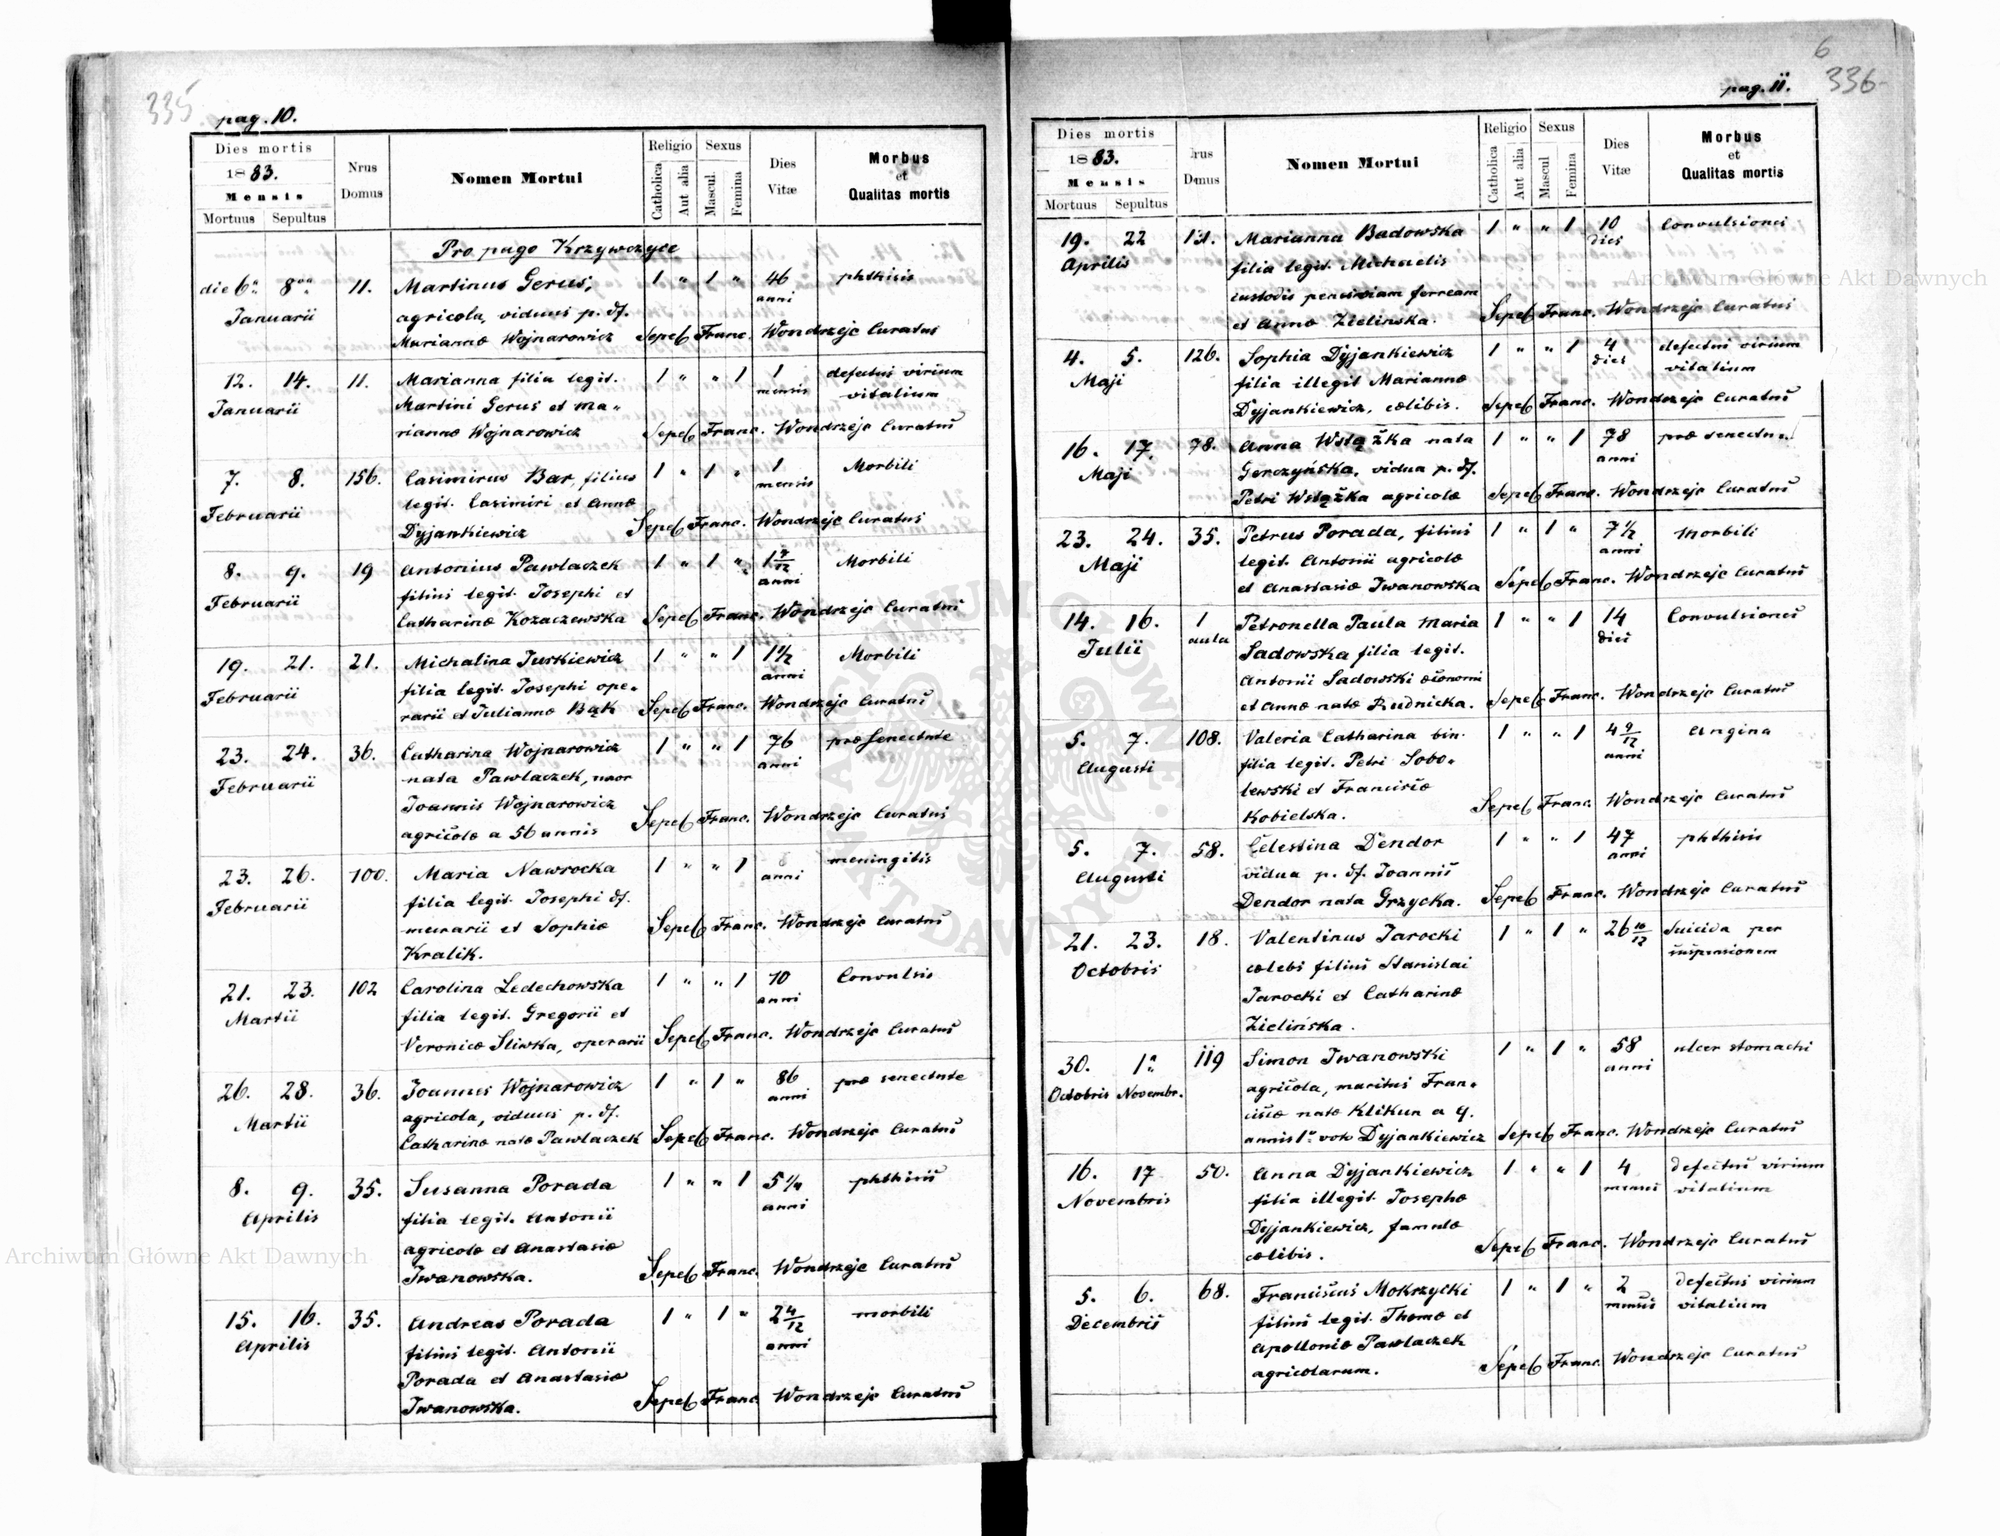 335.
pag. 10.
Dies mortis
1883.
Mensis
Mortuus Sepultus
Nrus
Domus
Nomen Mortui
Religio
Catholica
Aut alia
Sexus
Mascul.
Femina
Dies
Vitæ
Morbus
et
Qualitas mortis
Pro pago Krzywczyce
die 6ª 8va 11. Martinus Gerus, 1 " 1 " 46 phthisis
anni
Januarii agricola, viduus p. df.
Mariannæ Wojnarowicz Sepel Franc. Wondrzeje Curatus
12. 14. 11. Marianna filia legit. 1 " " 1 1 defectus virium
Januarii Martini Gerus et Ma„ mensis vitalium
riannæ Wojnarowicz Sepel Franc. Wondrzeje Curatus
7. 8. 156. Casimirus Bar filius 1 " 1 " 1 Morbili
Februarii legit. Casimiri et Annæ mensis
Dyjankiewicz Sepel Franc. Wondrzeje Curatus
8. 9. 19 Antonius Pawlaczek 1 " 1 " 1 7/12 Morbili
Februarii filius legit. Josephi et anni
Catharinæ Kozaczewska Sepel Franc. Wondrzeje Curatus
19. 21. 21. Michalina Juskiewicz 1 " " 1 1 1/2 Morbili
Februarii filia legit. Josephi ope„ anni
rarii et Juliannæ Bąk Sepel Franc. Wondrzeje Curatus
23. 24. 36. Catharina Wojnarowicz 1 " " 1 76 præ senectute
Februarii nata Pawlaczek, uxor anni
Joannis Wojnarowicz
agricolæ a 56 annis Sepel Franc. Wondrzeje Curatus
23. 26. 100. Maria Nawrocka 1 " " 1 8 meningitis
Februarii filia legit. Josephi df. anni
murarii et Sophiæ Sepel Franc. Wondrzeje Curatus
Kralik.
21. 23. 102 Carolina Ledechowska 1 " " 1 10 Convulsis
Martii filia legit. Gregorii et anni
Veronicæ Sliwka, operarii Sepel Franc. Wondrzeje Curatus
26. 28. 36. Joannes Wojnarowicz 1 " 1 " 86 præ senectute
Martii agricola, viduus p. df. anni
Catharinæ natæ Pawlaczek Sepel Franc. Wondrzeje Curatus
8. 9. 35. Susanna Porada 1 " " 1 5 1/4 phthisis
Aprilis filia legit. Antonii anni
agricolæ et Anastasiæ
Iwanowska. Sepel Franc. Wondrzeje Curatus
15. 16. 35. Andreas Porada 1 " 1 " 2 4/12 morbili
Aprilis filius legit. Antonii anni
Porada et Anastasiæ
Iwanowska. Sepel Franc. Wondrzeje Curatus
6
336
pag. 11.
Dies mortis
1883.
Mensis
Mortuus Sepultus
Nrus
Domus
Nomen Mortui
Religio
Catholica
Aut alia
Sexus
Mascul
Femina
Dies
Vitæ
Morbus
et
Qualitas mortis
19. 22 131. Marianna Badowska 1 " " 1 10 Convulsiones
Aprilis filia legit. Michaelis dies
custodis penes viam ferream
et Annæ Zielinska. Sepel Franc. Wondrzeje Curatus
4. 5. 126. Sophia Dyjankiewicz 1 " " 1 4 defectus virium
Maji filia illegit Mariannæ dies vitalium
Dyjankiewicz, cælibis. Sepel Franc. Wondrzeje Curatus
16. 17. 78. Anna Wstążka nata 1 " " 1 78 præ senectute
Maji Gerczyńska, vidua p. df. anni
Petri Wstążka agricolæ Sepel Franc. Wondrzeje Curatus
23. 24. 35. Petrus Porada, filius 1 " 1 " 7 1/2 Morbili
Maji legit. Antonii agricolæ anni
et Anastasiæ Iwanowska Sepel Franc. Wondrzeje Curatus
14. 16. 1 Petronella Paula Maria 1 " " 1 14 Convulsiones
Julii aula Sadowska filia legit. dies
Antonii Sadowski œconomi
et Annæ natæ Rudnicka. Sepel Franc. Wondrzeje Curatus
5. 7. 108. Valeria Catharina bin. 1 " " 1 4 9/12 Angina
Augusti filia legit. Petri Sobo„ anni
lewski et Franciscæ
Kobielska. Sepel Franc. Wondrzeje Curatus
5. 7. 58. Celestina Dendor 1 " " 1 47 phthisis
Augusti vidua p. df. Joannis anni
Dendor nata Grzycka. Sepel Franc. Wondrzeje Curatus
21. 23. 18. Valentinus Jarocki 1 " 1 " 26 10/12 Suicida per
Octobris cælebs filius Stanislai suspensionem
Jarocki et Catharinæ
Zielińska.
30. 1ª 119 Simon Iwanowski 1 " 1 " 58 ulcer stomachi
Octobris Novembr. agricola, maritus Fran„ anni
ciscæ natæ Klikun a 9.
annis 1º voto Dyjankiewicz Sepel Franc. Wondrzeje Curatus
16. 17 50. Anna Dyjankiewicz 1 " " 1 4 defectus virium
Novembris filia illegit. Josephæ menses vitalium
Dyjankiewicz, famulæ
cælibis. Sepel Franc. Wondrzeje Curatus
5. 6. 68. Franciscus Mokrzycki 1 " 1 " 2 defectus virium
Decembris filius legit. Thomæ et menses vitalium
Apolloniæ Pawlaczek
agricolarum. Sepel Franc. Wondrzeje Curatus
Archiwum Główne Akt Dawnych
Archiwum Główne Akt Dawnych
ARCHIWUM GŁÓWNE AKT DAWNYCH